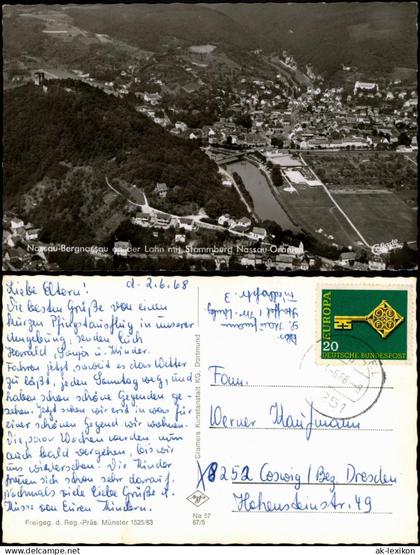 Nassau-Bergnassau an der Lahn mit Stammburg Nassau-Oranien
d. 2.6.68
Liebe Eltern!
Die besten Grüße von einem
kurzen Pfingstausflug in unserer
Umgebung, senden Euch
Harald, Sonja u. Kinder.
Fahren jetzt, soweit es das Wetter
zu läßt, jeden Sonntag weg, und
haben schon schöne Gegenden ge-
sehen. Jetzt sehen wir erst in was für
einer schönen Gegend wir wohnen.
Die paar Wochen werden nun
auch bald vergehen, bis wir
uns wiedersehen. Die Kinder
freuen sich schon sehr darauf.
Nochmals viele liebe Grüße u.
Küsse von Euren Kindern.
Freigeg. d. Reg.-Präs. Münster 1525/63
Cramers Kunstanstalt KG. Dortmund
Na 57
67/5
Abs.
EUROPA
20
DEUTSCHE BUNDESPOST
Fam.
Werner Kaufmann
8252 Coswig/Bez. Dresden
Hohensteinstr. 49
© ak-lexikon.de
https://www.ak-ansichtskarten.de